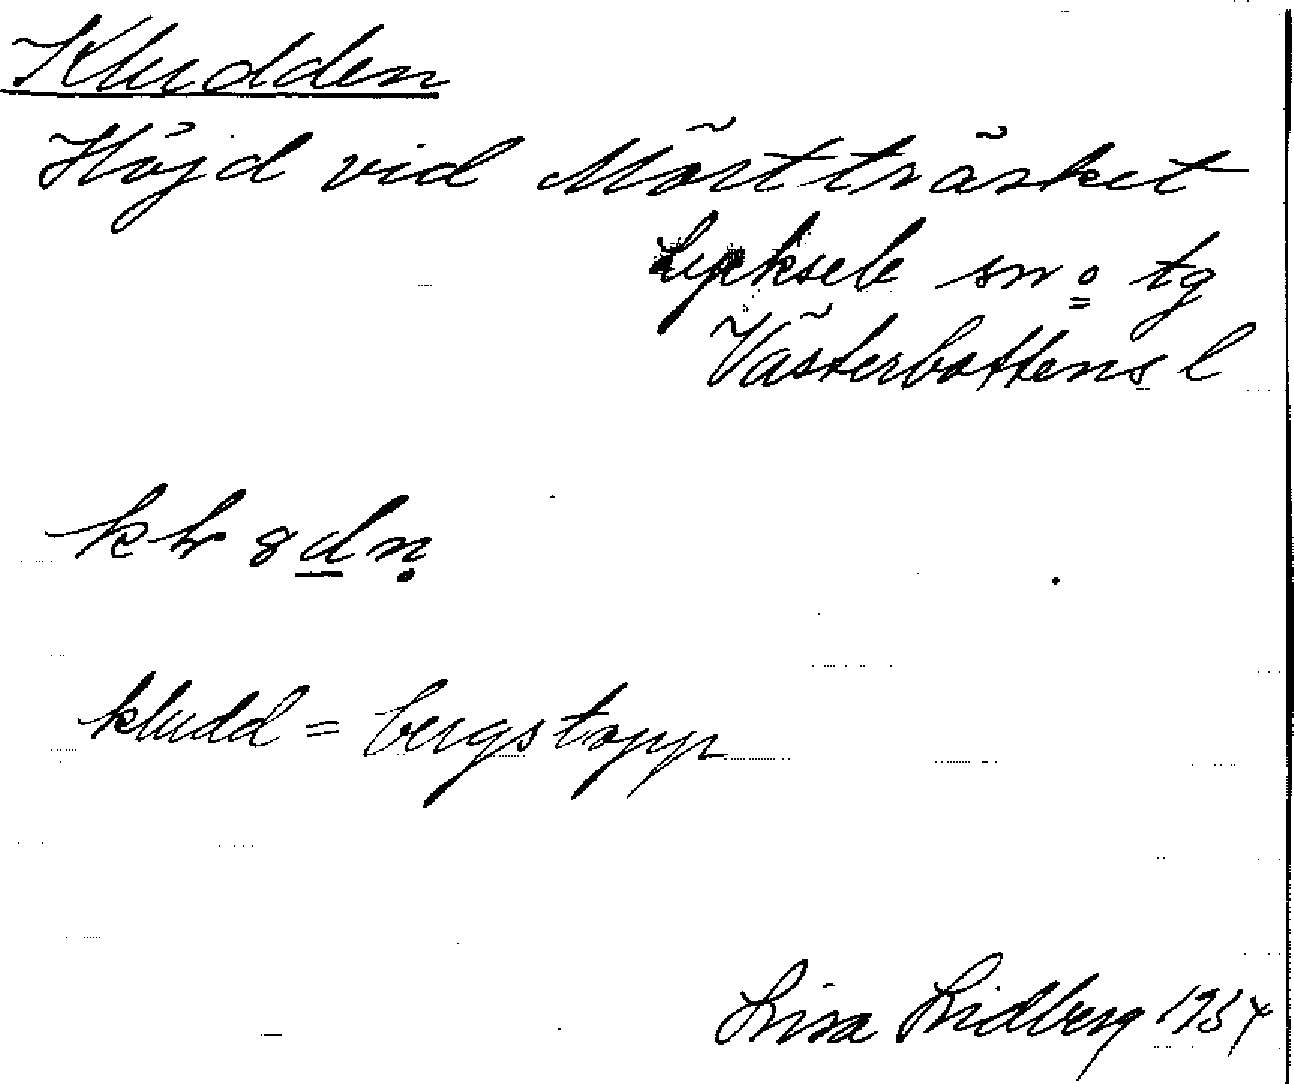 Kludden
Höjd vid Mörtträsket
Lycksele sn o tg
Västerbottens l
kludd = bergstopp
Lisa Lidberg 1954